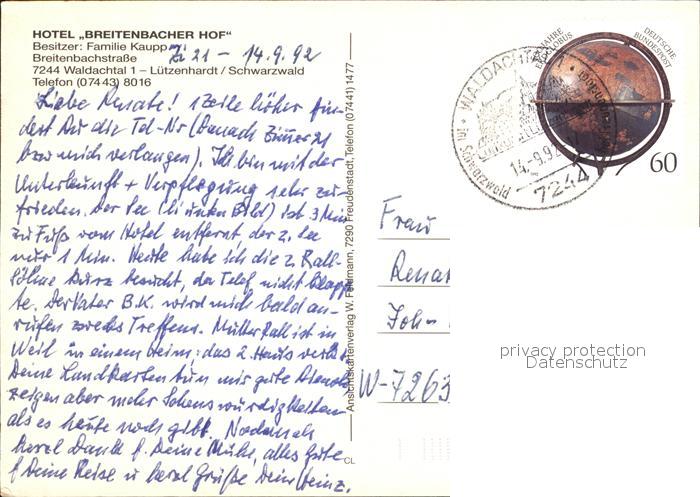 HOTEL „BREITENBACHER HOF"
Besitzer: Familie Kaupp
Breitenbachstraße
7244 Waldachtal 1 – Lützenhardt / Schwarzwald
Telefon (074 43) 8016
Zi 21 – 14.9.92
Liebe Renate! 1 Zeile höher fin-
dest Du die Tel-Nr (Danach Zimmer 21
bzw mich verlangen). Ich bin mit der
Unterkunft + Verpflegung sehr zu-
frieden. Der See (li unten Bild) ist 3 Min
zu Fuß vom Hotel entfernt der 2. See
nur 1 Min. Heute habe ich die 2
söhne kurz besucht, da Telef nicht klapp
te. Der Vater B.K. wird mich bald an-
rufen zwecks Treffens. Mutter ist in
Weil in einem Heim: das 2. Haus
Deine Landkarten tun mir gute Dienste
zeigen aber mehr Sehenswürdigkeiten
als es heute noch gibt. Nochmals
herzl Dank f. Deine Mühe, alles Gute
f Deine Reise u herzl Grüße Dein Heinz.
Ansichtskartenverlag W. Feldmann, 7290 Freudenstadt, Telefon (07441) 1477
CL
WALDACHTAL
im Schwarzwald
14.-9.92
7244
JAHRE
ERDGLOBUS
DEUTSCHE
BUNDESPOST
60
Frau
Renat
Joh-
W-7263
privacy protection
Datenschutz